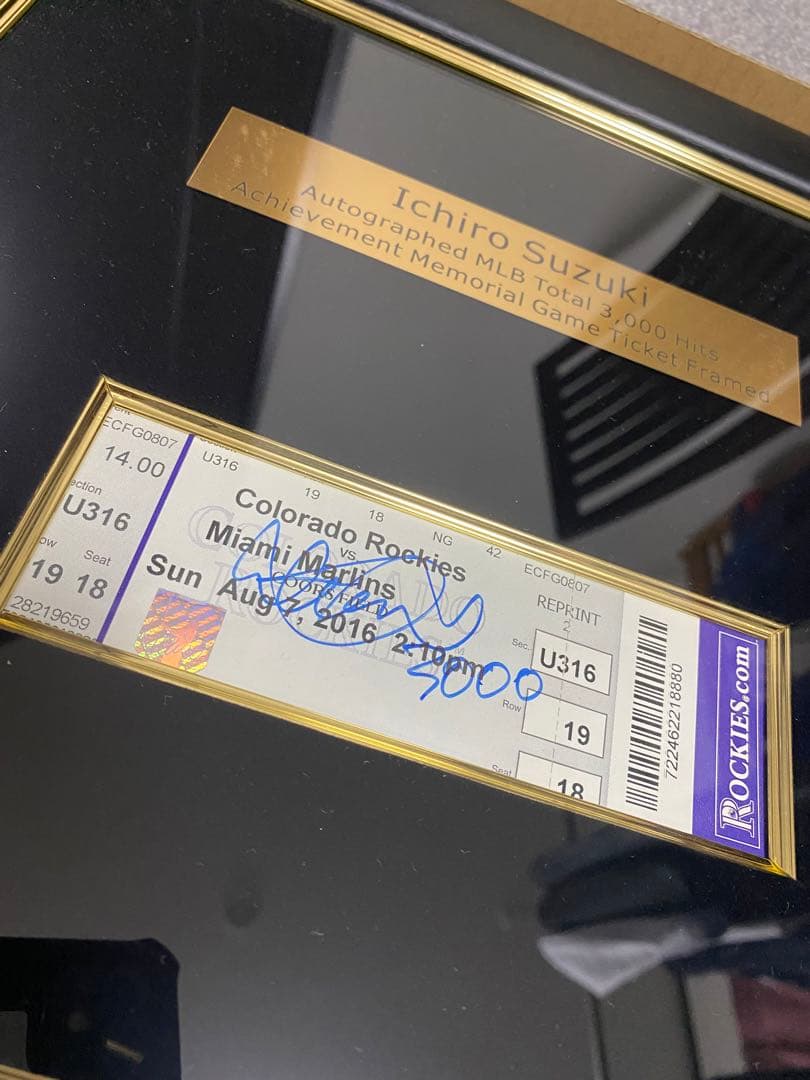 Ichiro Suzuki
Autographed MLB Total 3,000 Hits
Achievement Memorial Game Ticket Framed
ECFG0807
14.00
U316
Seat
19 18
28219659
U316 19 18 NG 42 ECFG0807
Colorado Rockies
vs
Miami Marlins
COORS FIELD
Sun Aug 7, 2016 2:10pm
3000
COLORADO
ROCKIES
REPRINT
2
Sec. U316
Row 19
Seat 18
722462218880
ROCKIES.com